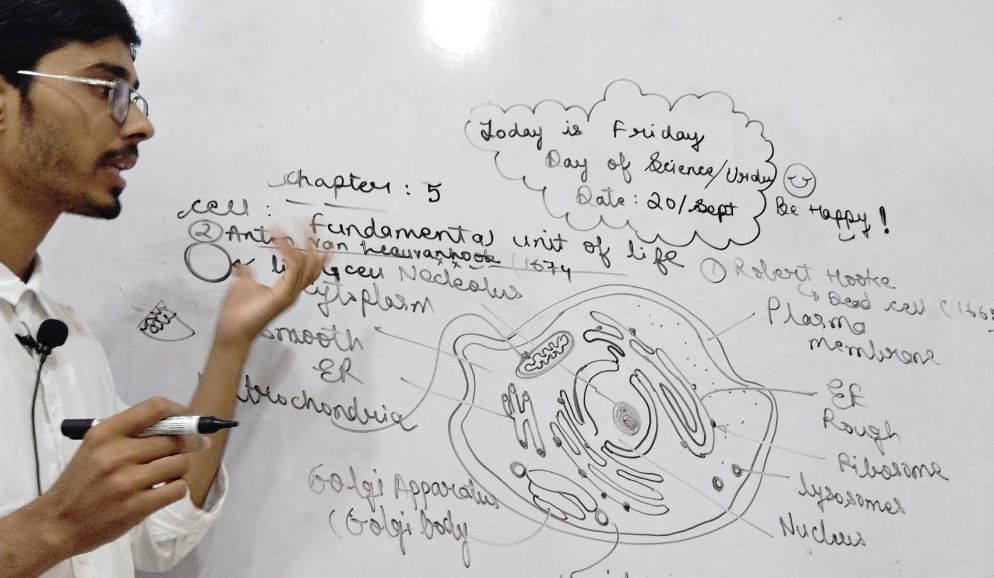 Today is Friday
Day of Science/Urdu
Date: 20/Sept
Be Happy!
Chapter: 5
Cell:
Fundamental unit of life
② Anton van Leeuvanhook (1674
living cell
① Robert Hooke
Dead cell (166
Necleolus
Cytoplasm
Smooth
ER
Mitochondria
Golgi Apparatus
(Golgi body
Plasma
membrane
ER
Rough
Ribosome
lysosomes
Nucleus